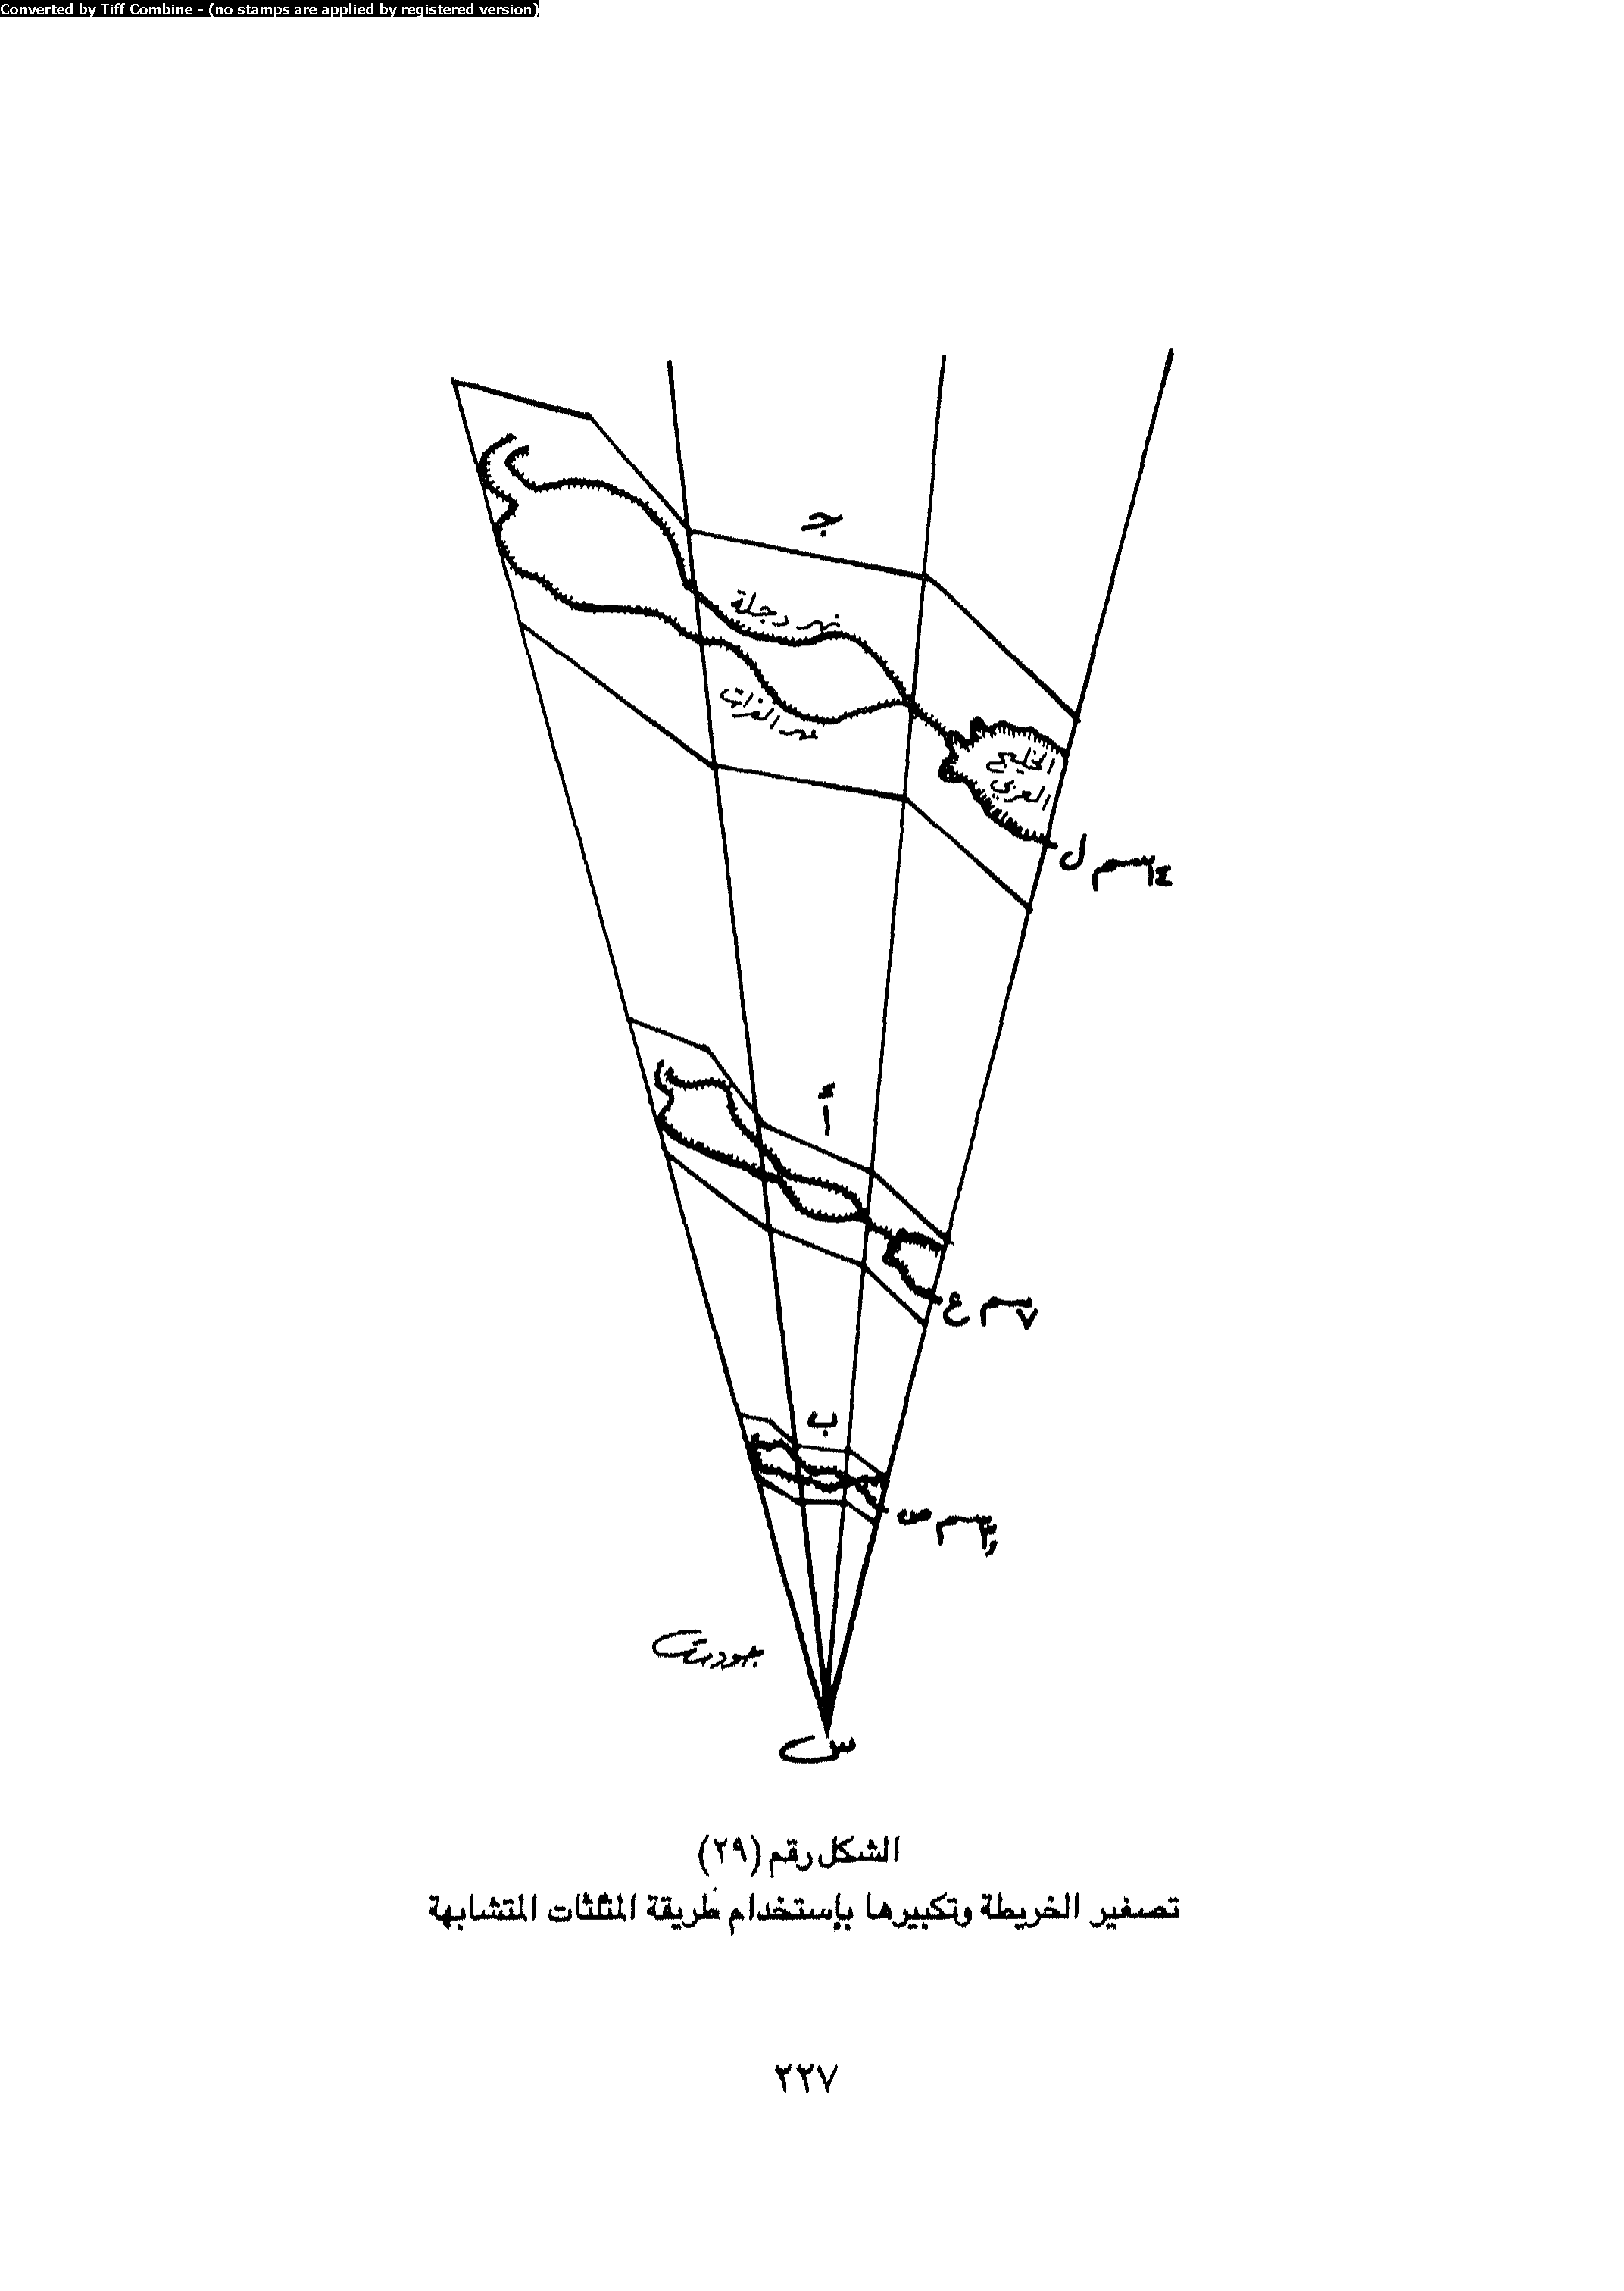 Converted by Tiff Combine - (no stamps are applied by registered version)
جـ
نهر دجلة
نهر الفرات
الخليج
العربي
ل ١٤سم
أ
ع ٧سم
ب
ص
س
الشكل رقم (٢٩)
تصغير الخريطة وتكبيرها بإستخدام طريقة المثلثات المتشابهة
٢٢٧